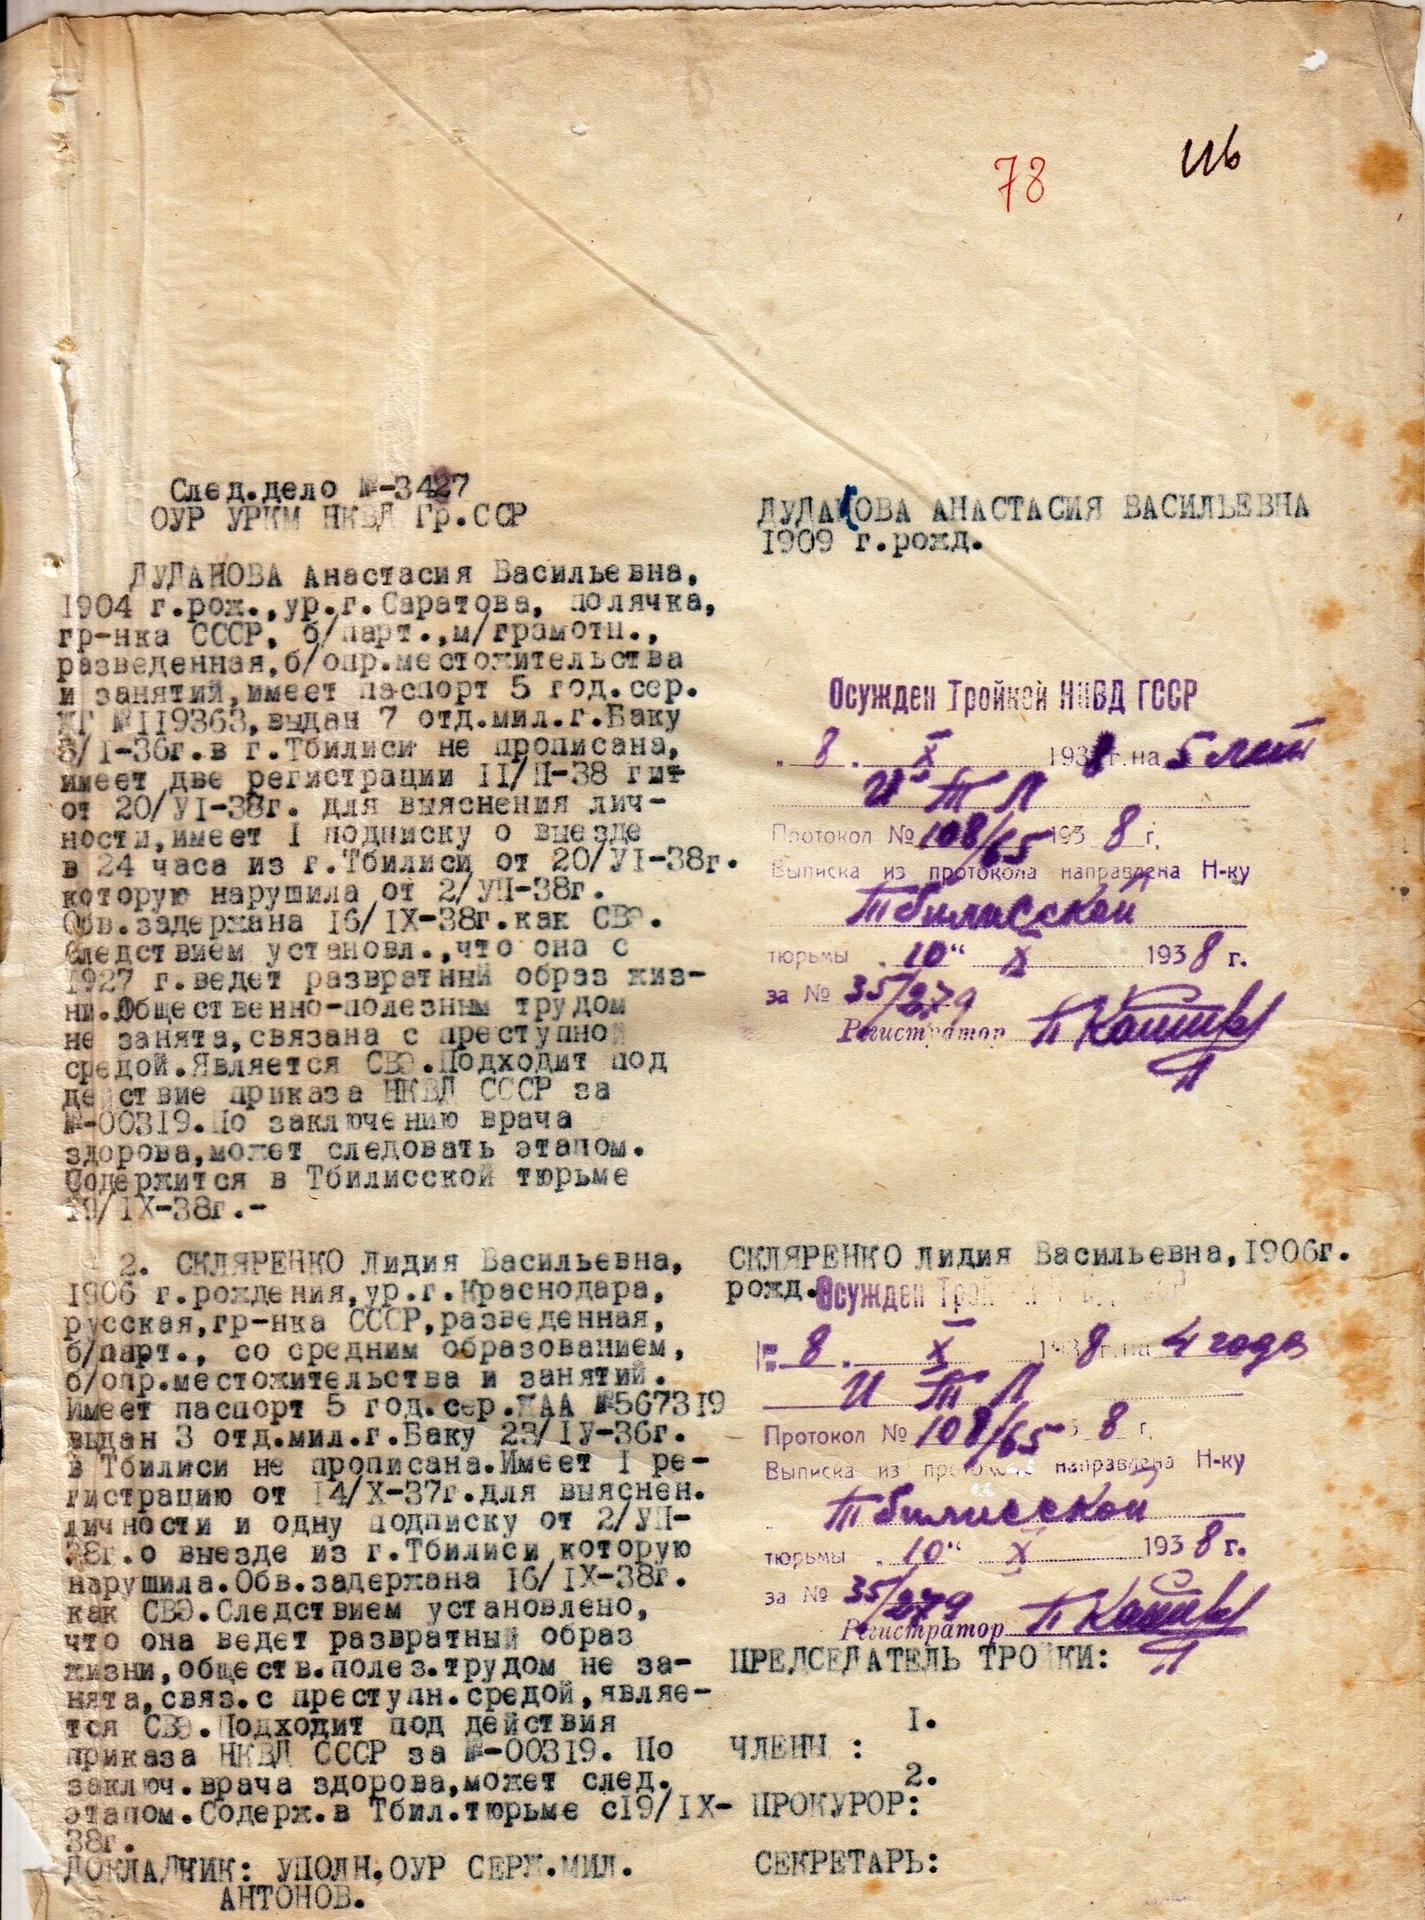 78
След.дело №-3427
ОУР УРКМ НКВД Гр.ССР
ДУДАНОВА Анастасия Васильевна,
1904 г.рож.,ур.г.Саратова, полячка,
гр-нка СССР, б/парт.,м/грамотн.,
разведенная,б/опр.местожительства
и занятий,имеет паспорт 5 год.сер.
№II9363,выдан 7 отд.мил.г.Баку
8/I-36г.в г.Тбилиси не прописана,
имеет две регистрации II/П-38 г
от 20/УI-38г. для выяснения лич-
ности,имеет I подписку о выезде
в 24 часа из г.Тбилиси от 20/УI-38г.
которую нарушила от 2/УП-38г.
Обв.задержана I6/IХ-38г.как СВЭ.
Следствием установл.,что она с
1927 г.ведет развратный образ жиз-
ни.Общественно-полезным трудом
не занята,связана с преступной
средой.Является СВЭ.Подходит под
действие приказа НКВД СССР за
№-00319.По заключению врача
здорова,может следовать этапом.
Содержится в Тбилисской тюрьме
19/IХ-38г.-
2. СКЛЯРЕНКО Лидия Васильевна,
1906 г.рождения,ур.г.Краснодара,
русская,гр-нка СССР,разведенная,
б/парт., со средним образованием,
б/опр.местожительства и занятий.
Имеет паспорт 5 год.сер. №567319
выдан 3 отд.мил.г.Баку 23/IУ-36г.
в Тбилиси не прописана.Имеет I ре-
гистрацию от I4/Х-37г.для выяснен.
личности и одну подписку от 2/УП-
38г.о выезде из г.Тбилиси,которую
нарушила.Обв.задержана I6/IХ-38г.
как СВЭ.Следствием установлено,
что она ведет развратный образ
жизни,обществ.полез.трудом не за-
нята,связ.с преступн.средой,являе-
тся СВЭ.Подходит под действия
приказа НКВД СССР за №-00319. По
заключ.врача здорова,может след.
этапом.Содерж.в Тбил.тюрьме с19/IХ-
38г.
ДОКЛАДЧИК: УПОЛН.ОУР СЕРЖ.МИЛ.
АНТОНОВ.
ДУДАКОВА АНАСТАСИЯ ВАСИЛЬЕВНА
1909 г.рожд.
Осужден Тройкой НКВД ГССР
„8„ X 1938 г. на 5 лет
И Т Л
Протокол № 108/65 1938 г.
Выписка из протокола направлена Н-ку
Тбилисской
тюрьмы „10“ X 1938 г.
за № 35/279
Регистратор
СКЛЯРЕНКО Лидия Васильевна,1906г.
рожд.
Осужден
8 X 1938 г. на 4 года
И Т Л
Протокол № 108/65 8 г.
Выписка из протокола направлена Н-ку
Тбилисской
тюрьмы „10“ X 1938 г.
за № 35/279
Регистратор
ПРЕДСЕДАТЕЛЬ ТРОЙКИ:
1.
ЧЛЕНЫ :
2.
ПРОКУРОР:
СЕКРЕТАРЬ: